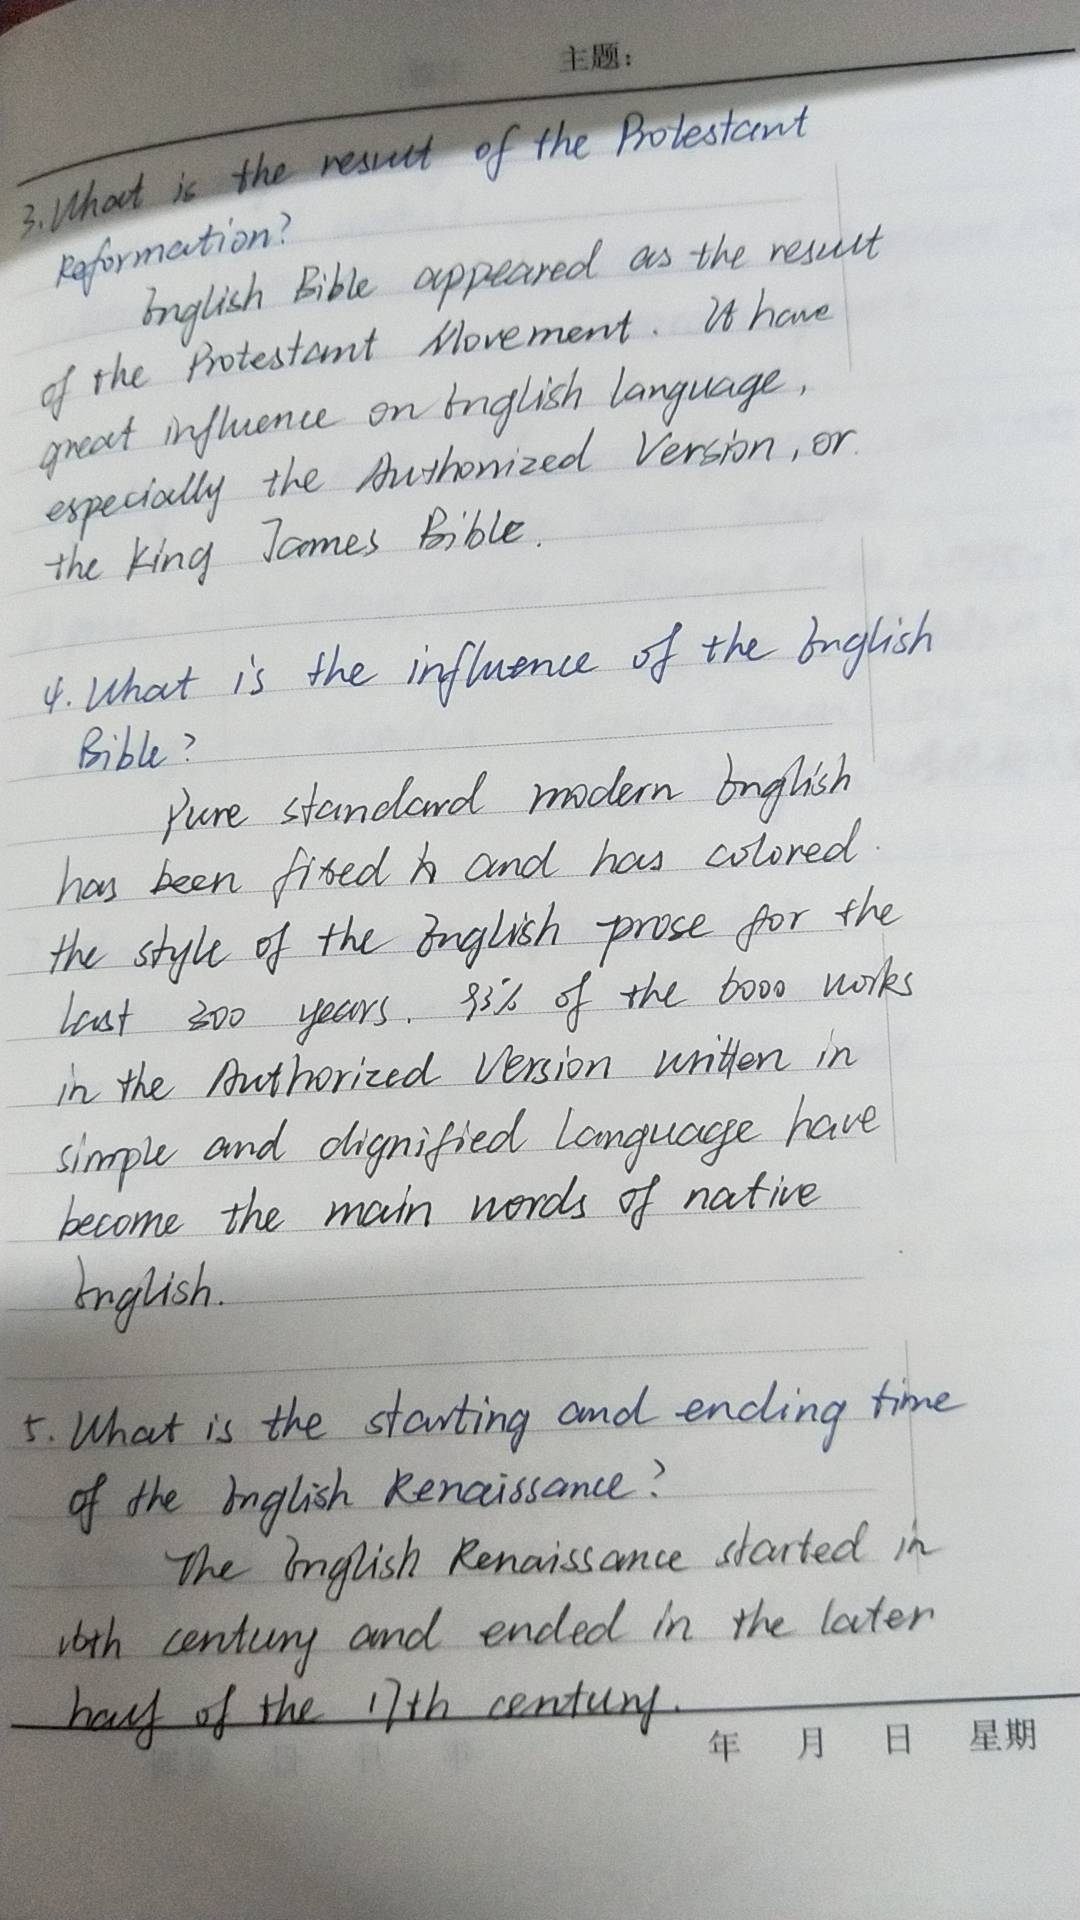 主题：
3. What is the result of the Protestant
Reformation?
English Bible appeared as the result
of the Protestant Movement. It have
great influence on English language,
especially the Authonized Version, or
the King James Bible.
4. What is the influence of the English
Bible?
Pure standard modern English
has been fixed and has colored
the style of the English prose for the
last 300 years. 93% of the 6000 works
in the Authorized Version written in
simple and dignified language have
become the main words of native
English.
5. What is the starting and ending time
of the English Renaissance?
The English Renaissance started in
16th century and ended in the later
half of the 17th century.
年 月 日 星期